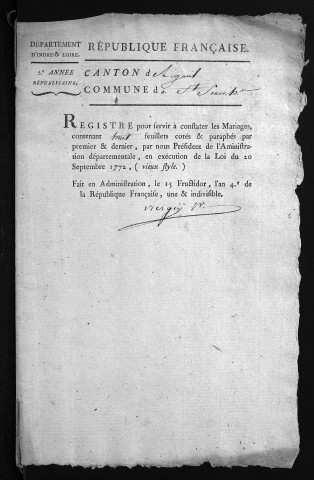 DÉPARTEMENT
D'INDRE & LOIRE.
5.e ANNÉE
RÉPUBLICAINE.
RÉPUBLIQUE FRANÇAISE.
CANTON de
COMMUNE de
REGISTRE pour servir à constater les Mariages,
contenant huit feuillets cotés & paraphés par
premier & dernier, par nous Président de l'Aministra-
tion départementale, en exécution de la Loi du 20
Septembre 1772, (vieux style.)
Fait en Administration, le 15 Fructidor, l'an 4.e de
la République Française, une & indivisible.